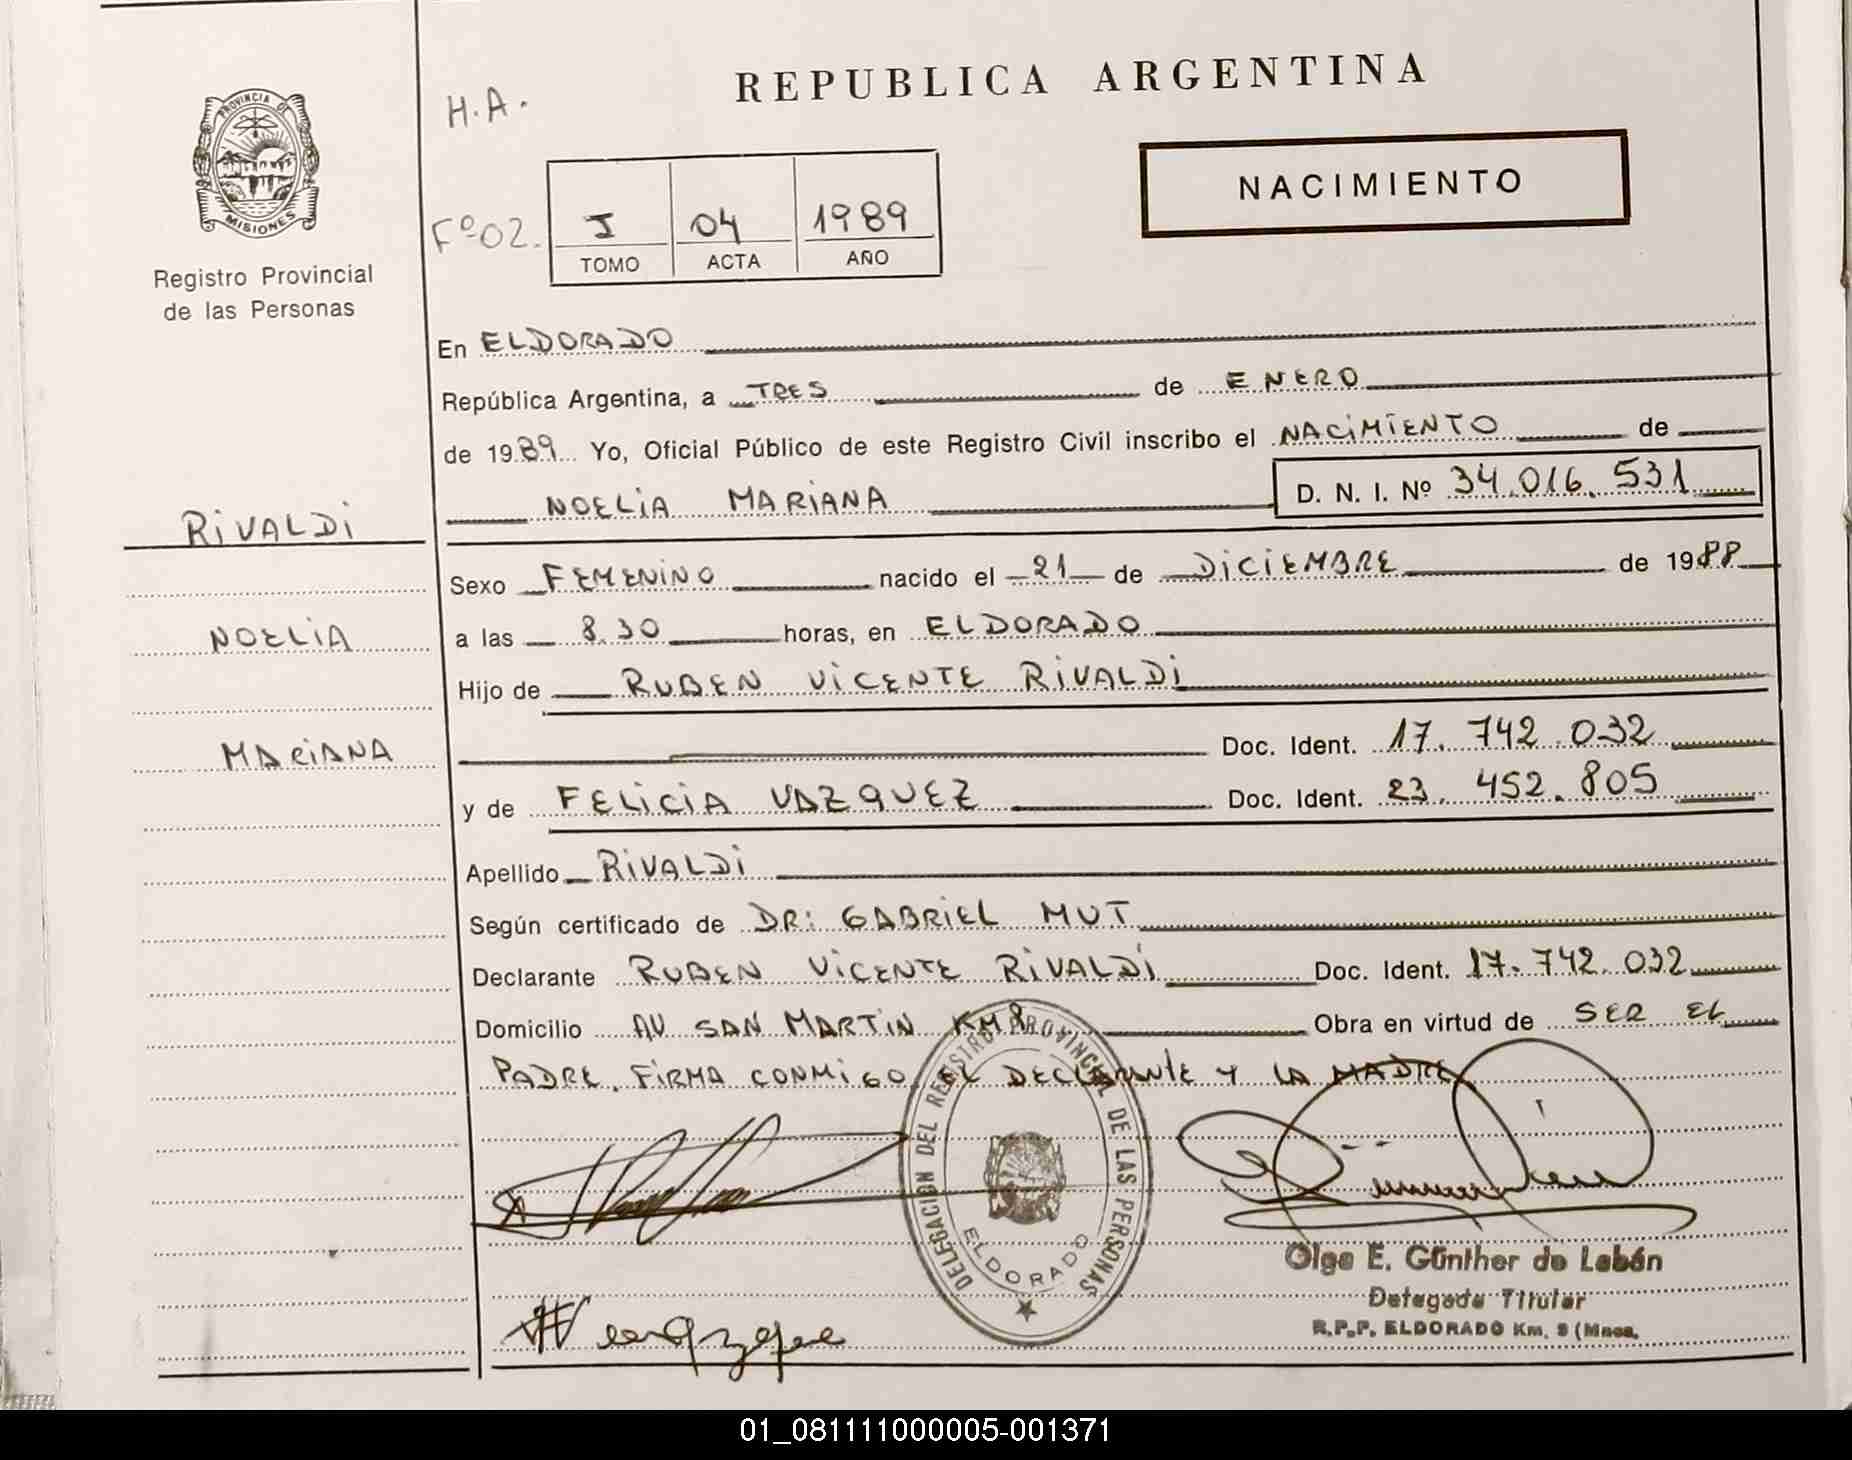 REPUBLICA ARGENTINA
H.A.
NACIMIENTO
PROVINCIA DE
MISIONES
Registro Provincial
de las Personas
Fº02.
I 04 1989
TOMO ACTA AÑO
En ELDORADO
República Argentina, a TRES de ENERO
de 1989 Yo, Oficial Público de este Registro Civil inscribo el NACIMIENTO de
NOELIA MARIANA D. N. I. Nº 34.016.531
RIVALDI
NOELIA
MARIANA
Sexo FEMENINO nacido el 21 de DICIEMBRE de 1988
a las 8.30 horas, en ELDORADO
Hijo de RUBEN VICENTE RIVALDI
Doc. Ident. 17.742.032
y de FELICIA VAZQUEZ Doc. Ident. 23.452.805
Apellido RIVALDI
Según certificado de DR: GABRIEL MUT
Declarante RUBEN VICENTE RIVALDI Doc. Ident. 17.742.032
Domicilio AV SAN MARTIN KM 8 Obra en virtud de SER EL
PADRE. FIRMA CONMIGO, EL DECLARANTE Y LA MADRE
DELEGACION DEL REGISTRO PROVINCIAL DE LAS PERSONAS
ELDORADO
Olga E. Günther de Labán
Delegada Titular
R.P.P. ELDORADO Km. 9 (Mnes.
01_081111000005-001371